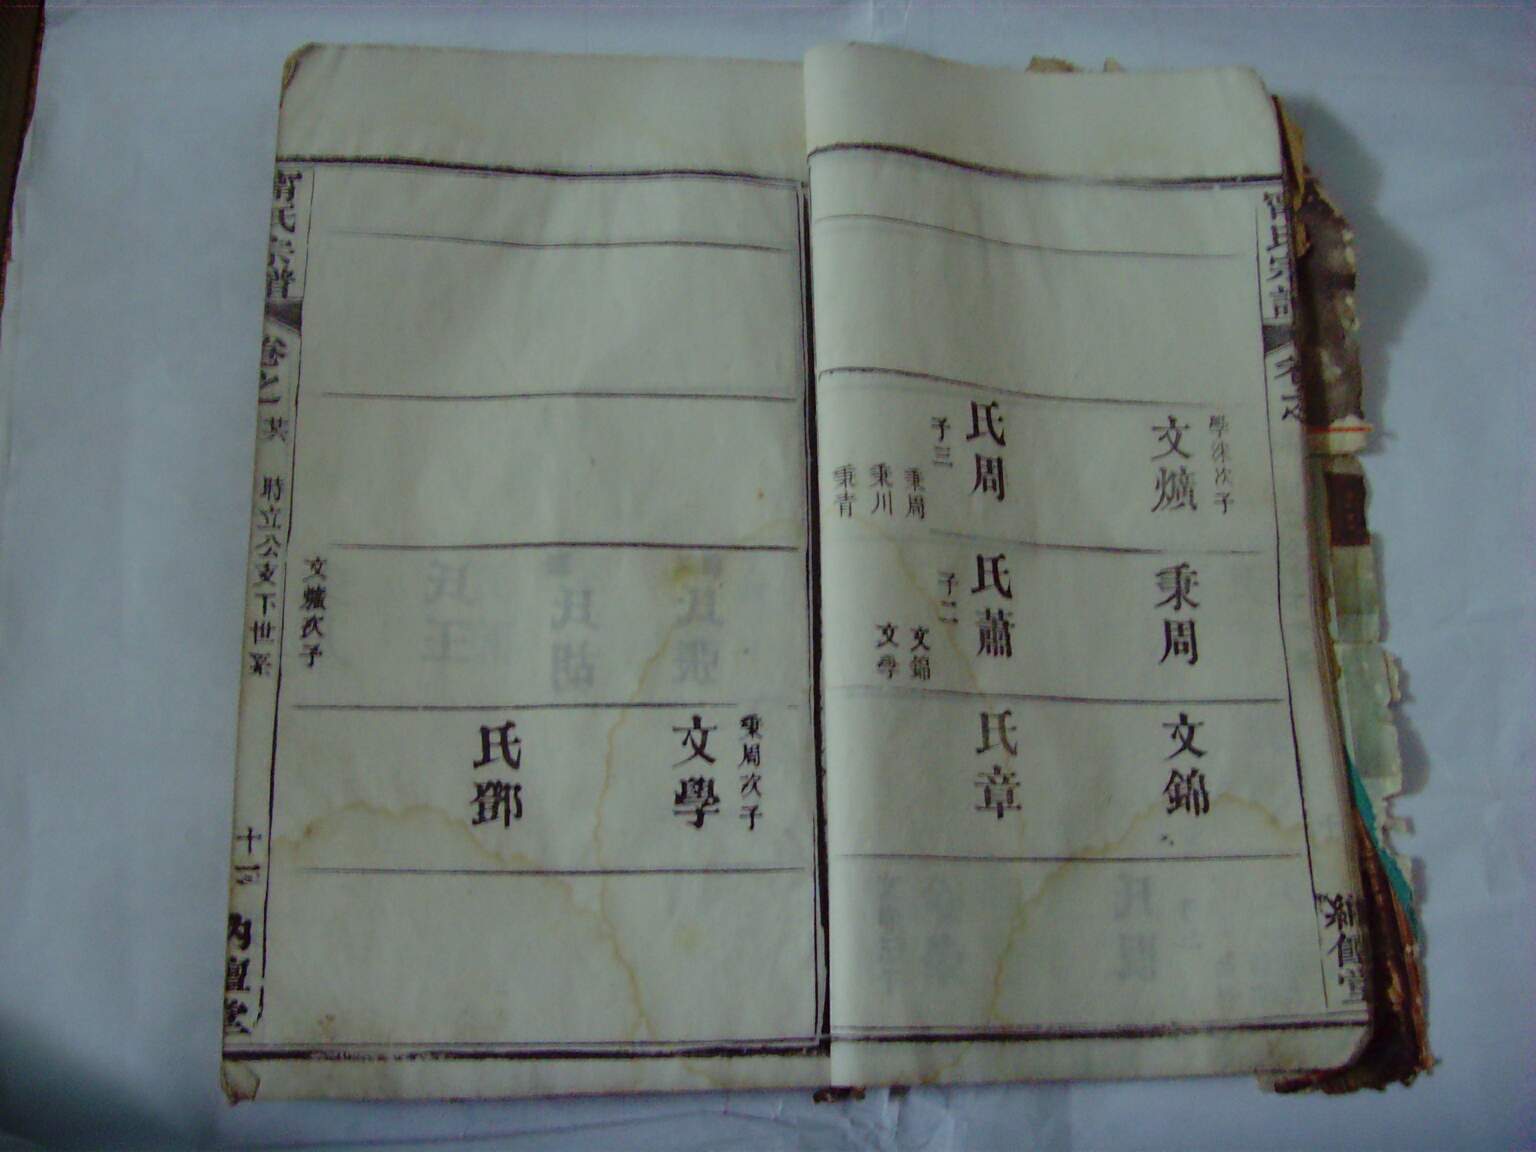 氏宗
學洙次子
文爌
氏周
子三
秉周
秉川
秉青
秉周
氏蕭
子二
文錦
文學
文錦
氏章
堂
秉周次子
文學
氏鄧
文爌次子
甯氏宗譜
卷之
其
時立公支下世系
十一
堂